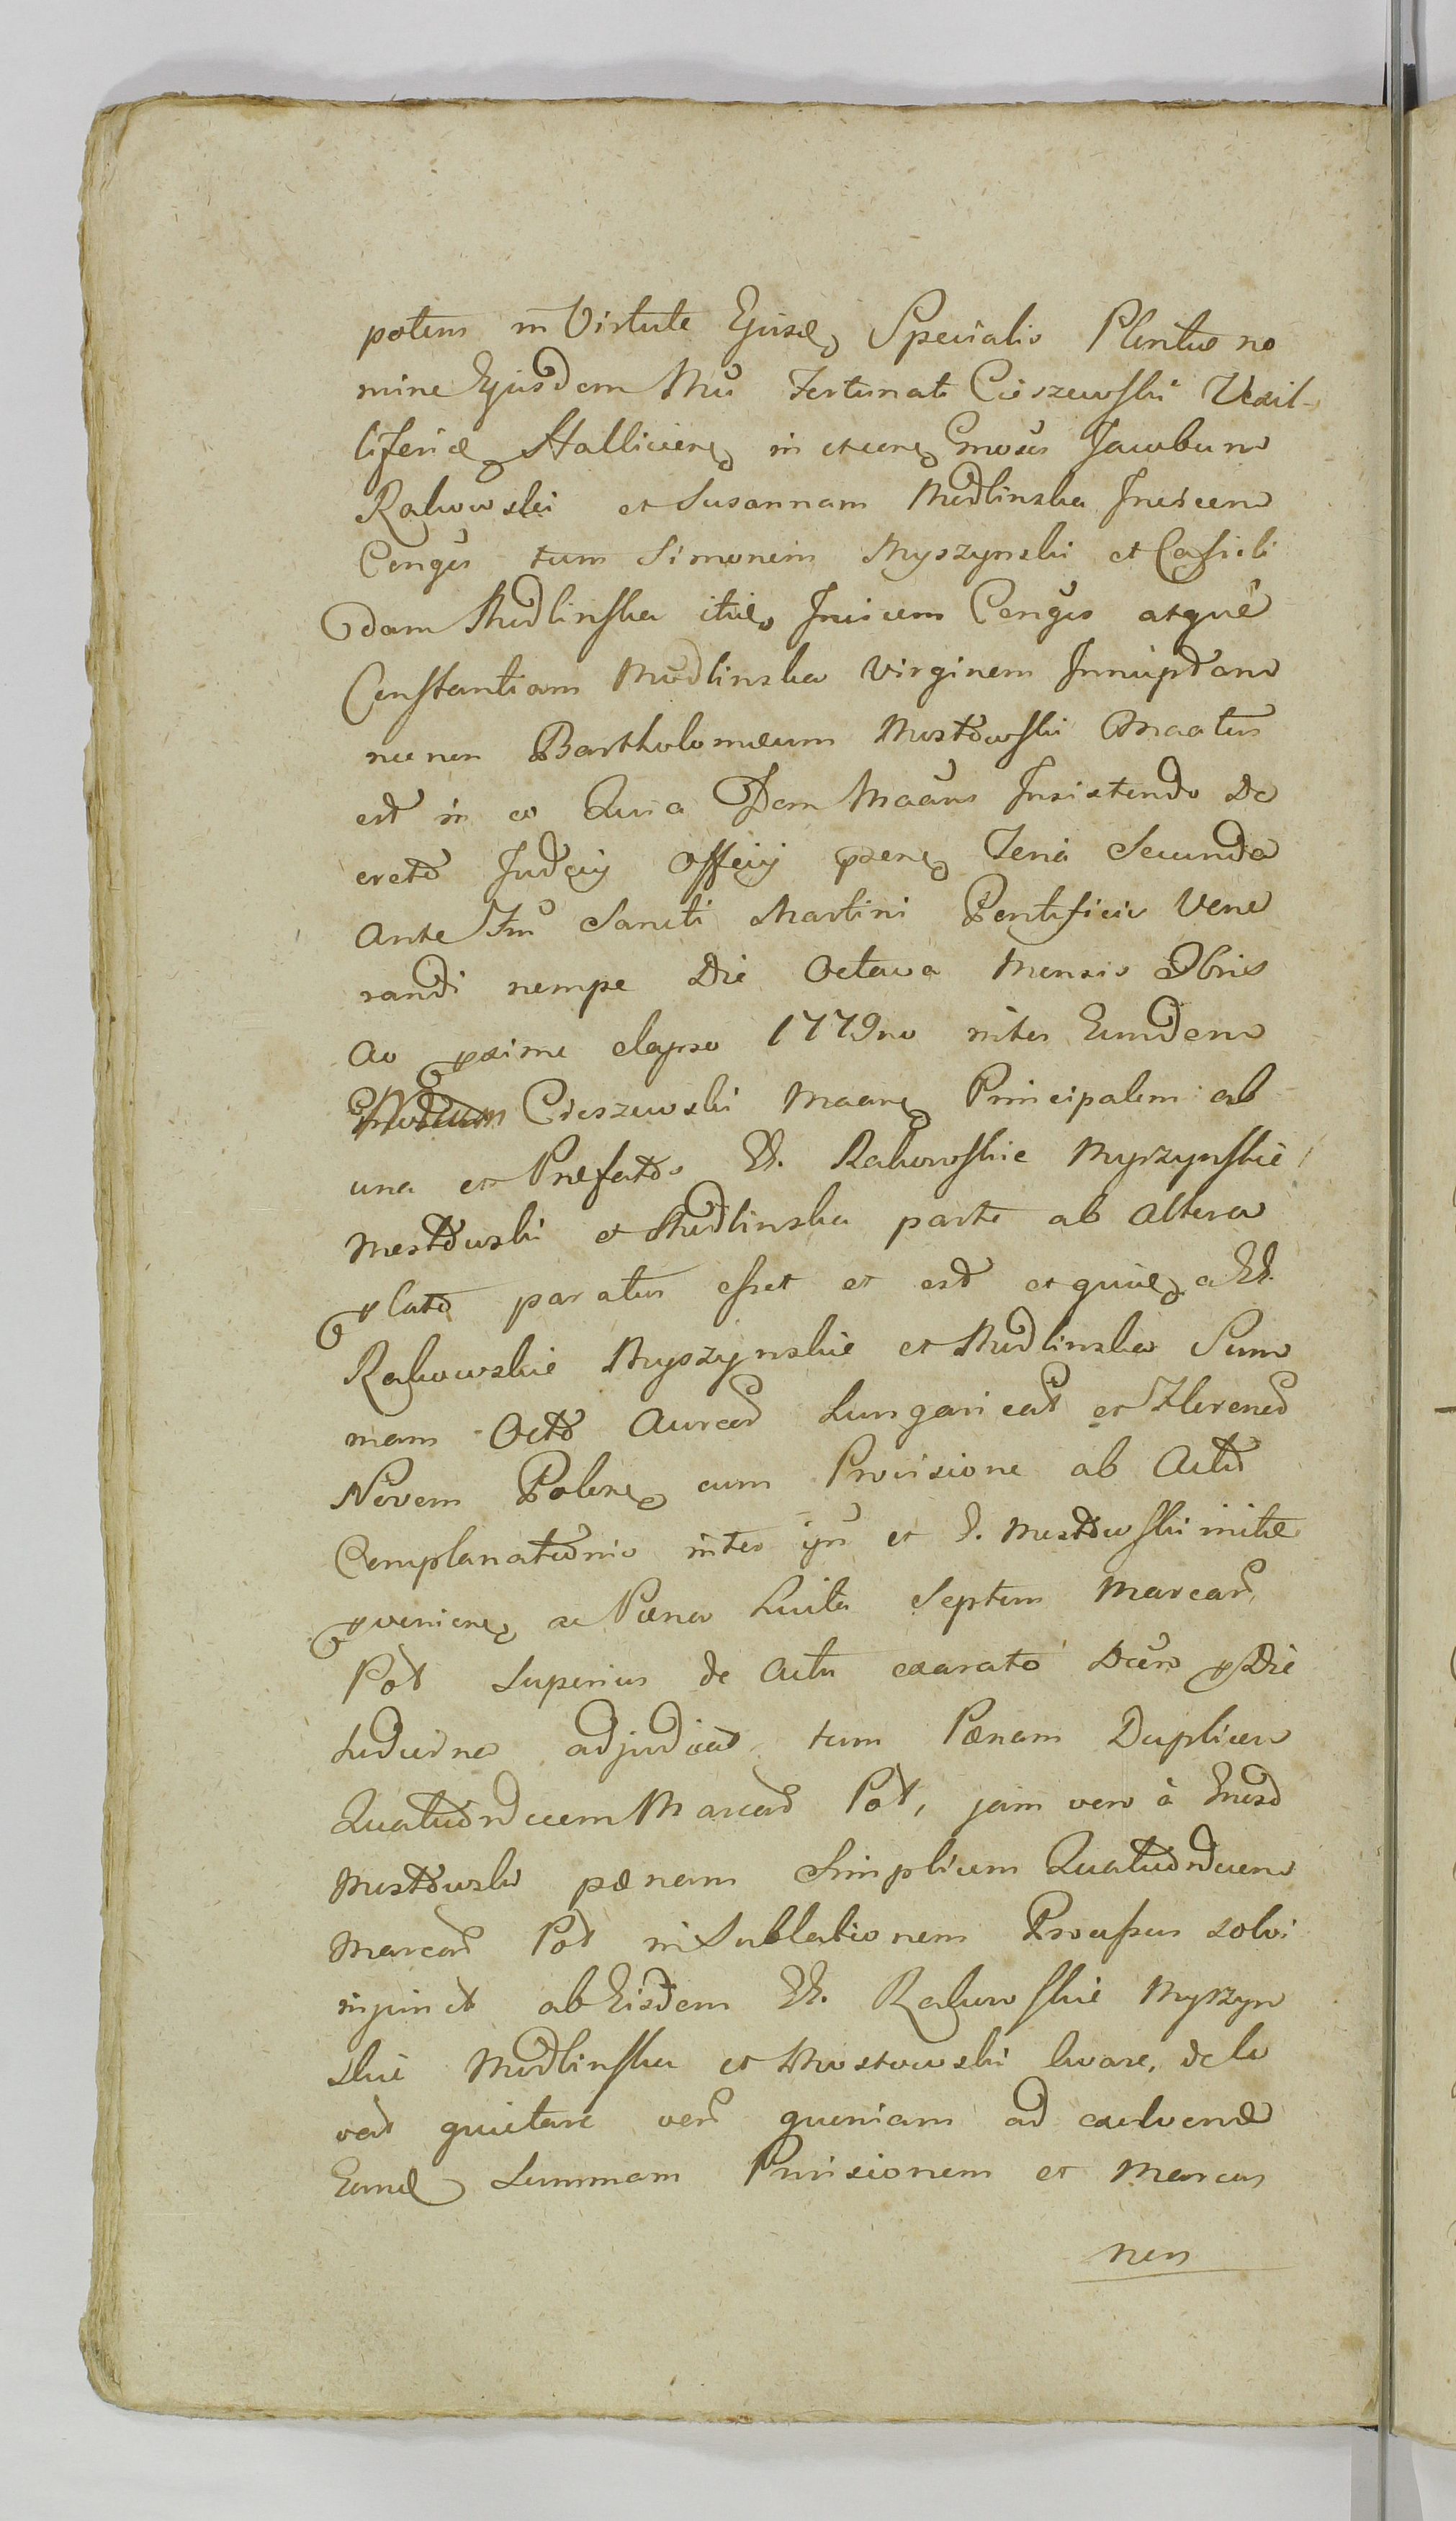 potens in Virtute Ejusd Specialis Plenitus no
mine Ejusdem Mci Fortunati Cieszewski Vexil-
liferidæ Halliciens in et cone Gnosos Jacobum
Rakowski et Susannam Modlinska Invicem
Conges tum Simonem Myszynski et Casieli
dam Modlinska itid Invicem Conges atque
Constantiam Modlinska Virginem Innuptam
nec non Bartholomæum Mostowski Maatus
est in eo Quia Idem Maans Insistendo De
creto Judcij Officij psene Feria Secunda
Ante Ftum Sancti Martini Pontificis Vene
randi nempe Die Octava Mensis 9bris
Ao pxime elapso 1779no inter Eundem
Cieszewski Maane Principalem ab
una et Præfatos Rakowskie Myszynskie
Mostowski et Modlinska parte ab altera
lato paratus esset et est et quide a
Rakowskie Myszynskie et Modlinska Sum
mam Octo Aureor Hungaricat et Floreno
Novem Polone cum Provisione ab Actu
Complanationis inter ips et Mostowski inite
pveniene ac Pæna Luita Septem Marcar
Pol Superius de Actu exarato Decro Die
hodierna adjudicat tum Pænam Duplicem
Quatuordecem Marcar Pol, jam vero à Gnoso
Mostowski pænam Simplicem Quatuordecem
Marcar Pol in Sublationem Processus solvi
injunct ab Eisdem Rakowskie Myszyn
skie Modlinska et Mostowski levare, dele
vat quietare vero quoniam ad exolvend
Eand Summam Provisionem et Marcas
non